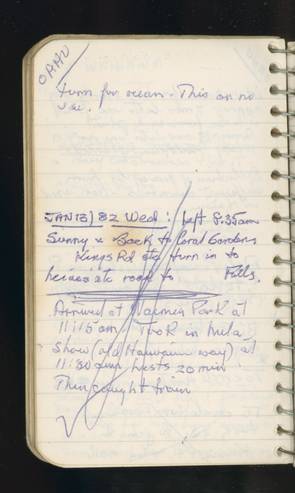 OAHU
turn for ocean. This on no
use.
JAN 13/82 Wed: left 8:35am
Sunny & Back to Coral Gardens
Kings Rd turn in to
road to Falls.
Arrived at Waimea Park at
11:15am. Took in hula
Show (old Hawaiian way) at
11:30am. Lasts 20 min
Then caught train